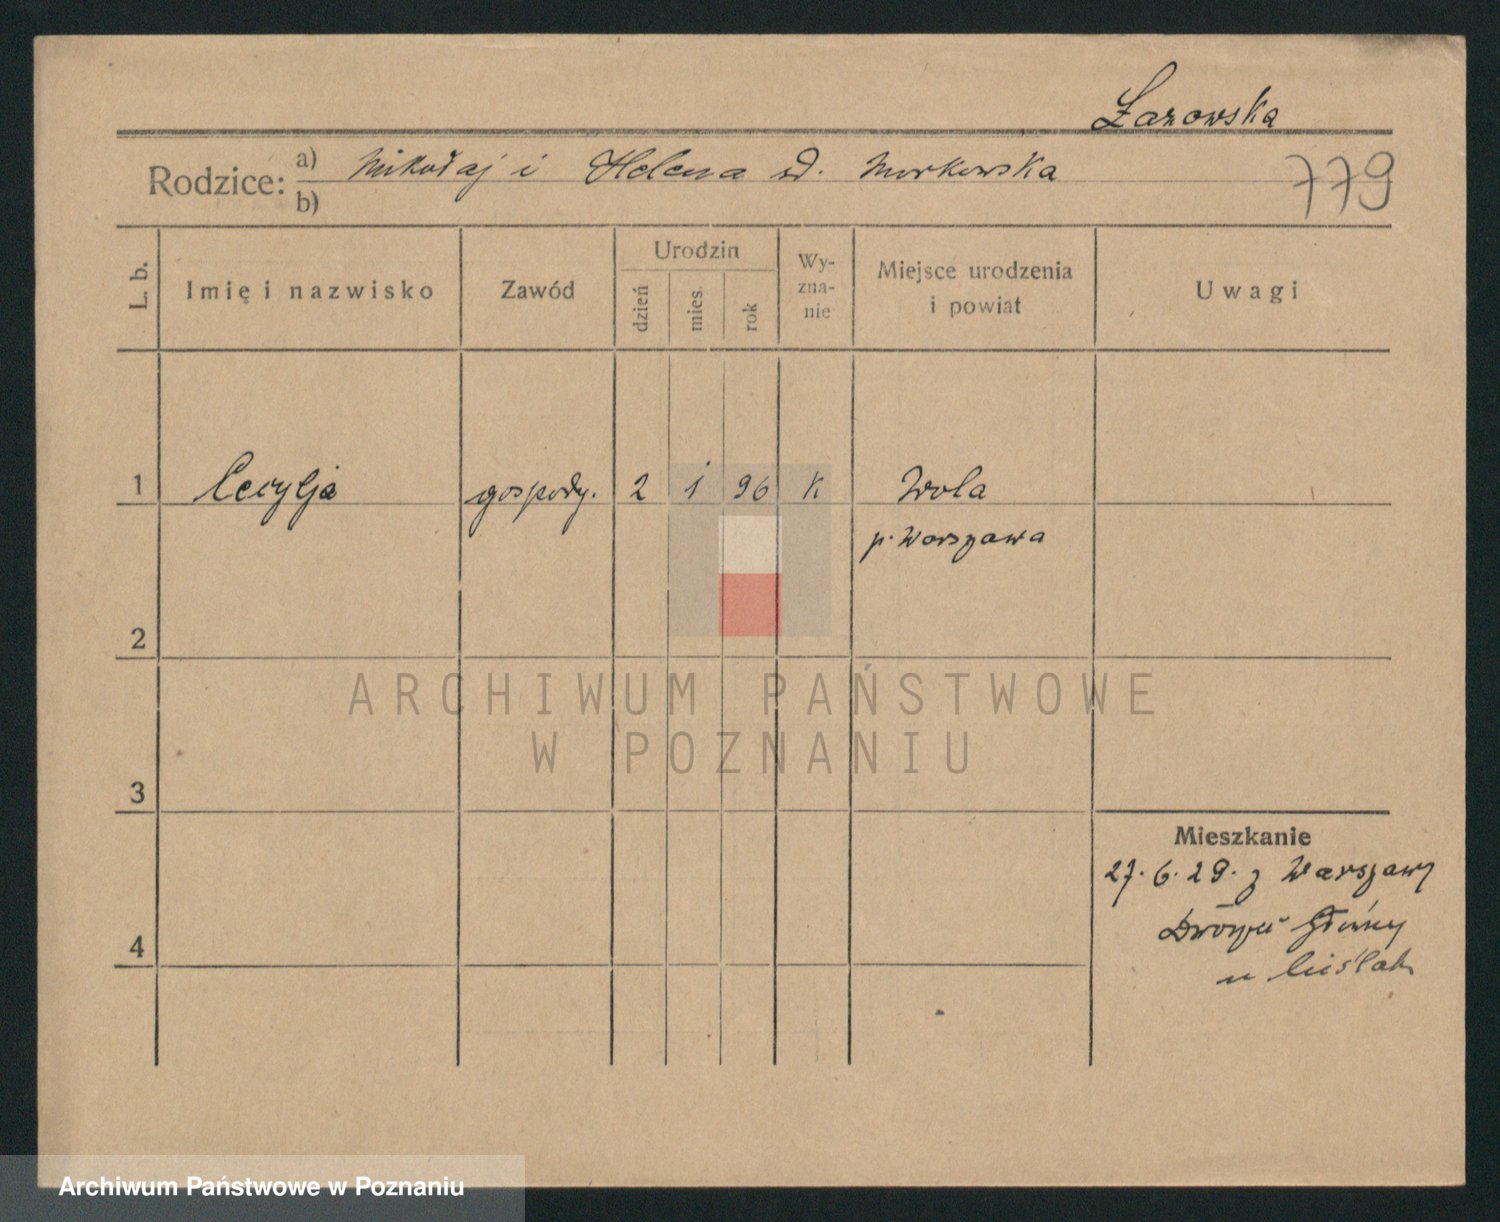 Łazowska
Rodzice: a) Mikołaj i Helena zd. Morkowska
b)
779
L. b.
Imię i nazwisko
Zawód
Urodzin
dzień
mies.
rok
Wy-
zna-
nie
Miejsce urodzenia
i powiat
Uwagi
1 Cecylja gospody. 2 1 96 K Wola
p. Warszawa
2
3
4
Mieszkanie
27.6.29. z Warszawy
Główny
u Cieślak
ARCHIWUM PAŃSTWOWE
W POZNANIU
Archiwum Państwowe w Poznaniu